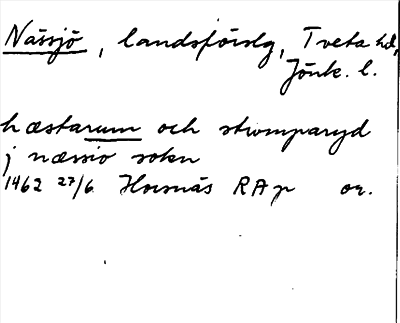 Nässjö, landsförslg, Tveta hd,
Jönk. l.
hæstarum och strompاryd
j næssio sokn
1462 27/6 Hornäs RAp or.